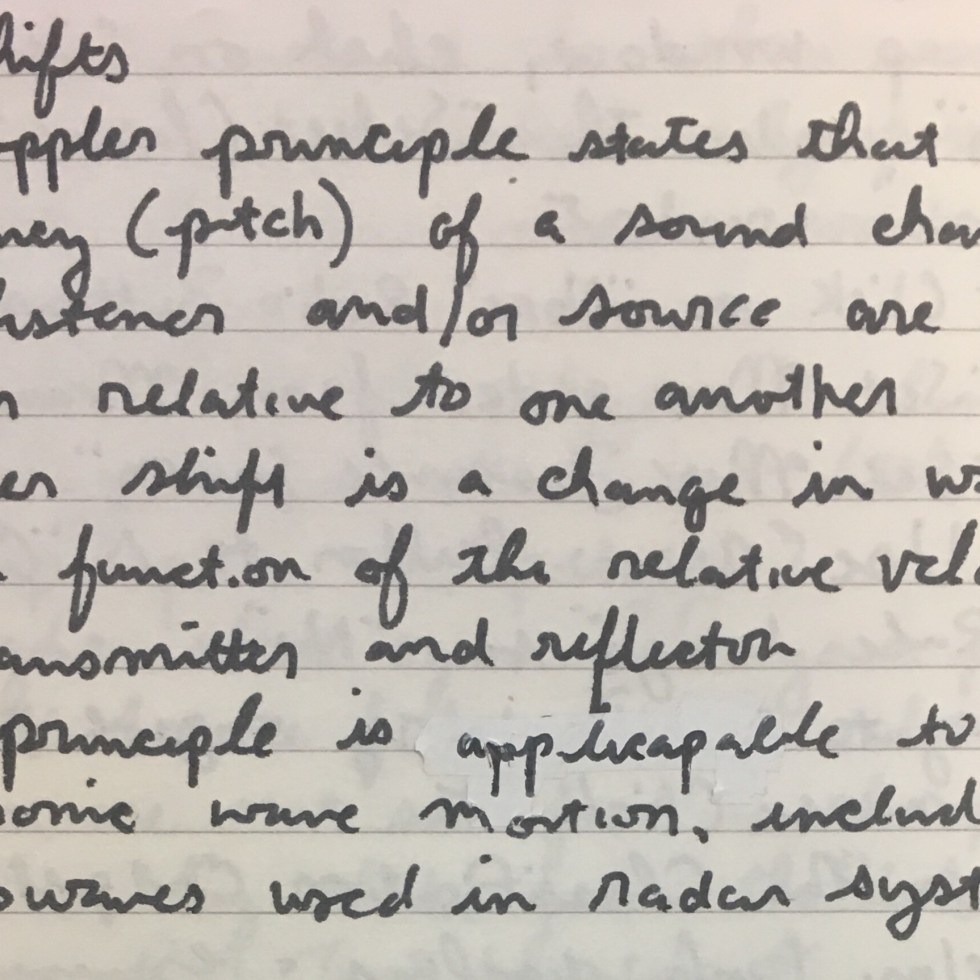 hifts
ppler principle states that
ney (pitch) of a sound cha
listener and/or source are
n relative to one another
er shift is a change in wa
function of the relative velo
ansmitter and reflector
principle is applicapable to
sonic wave motion, includ
owaves used in radar syst